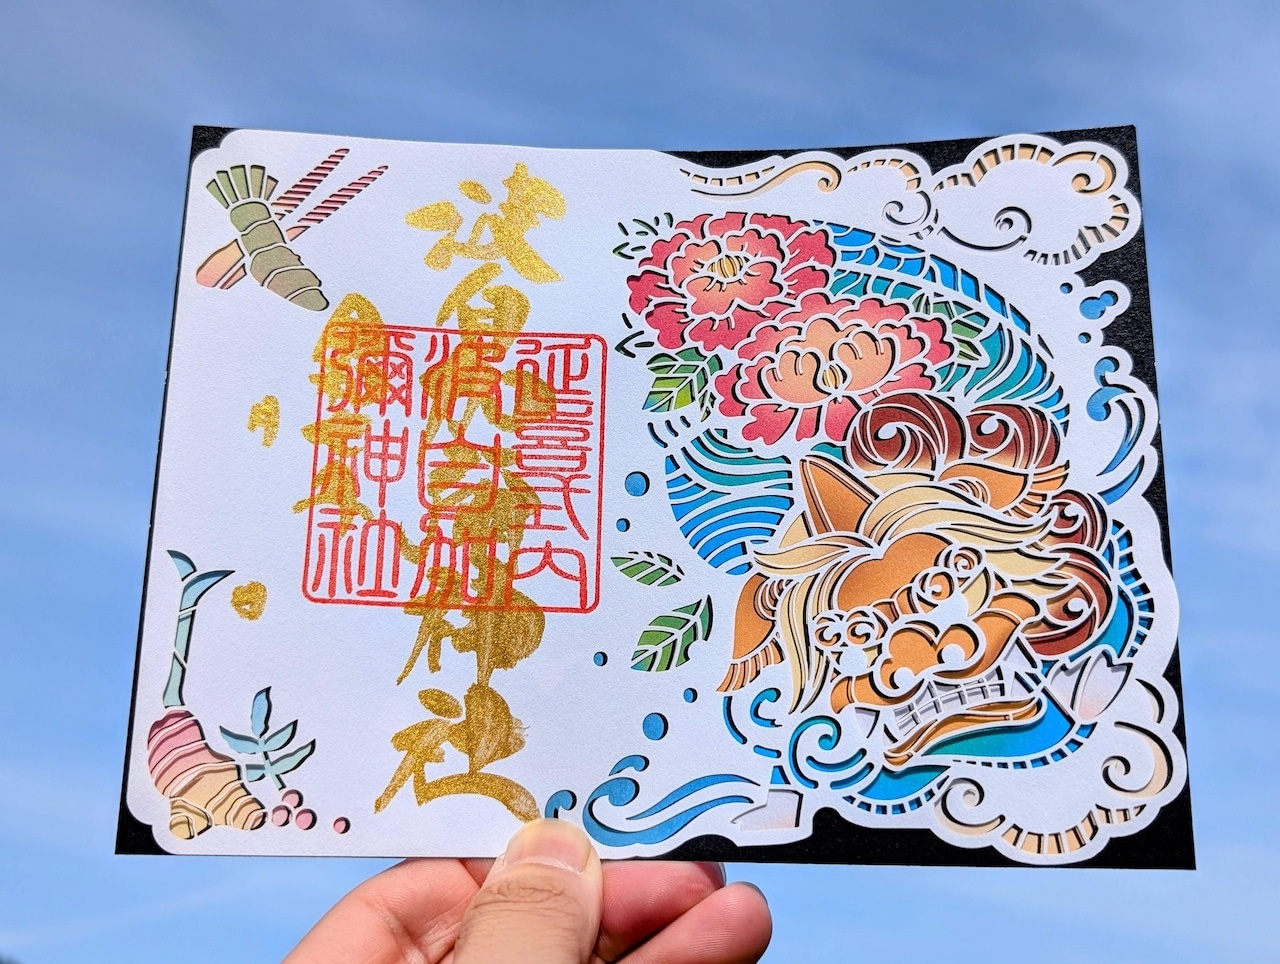 波自加彌神社
延喜式内
波自加
彌神社
月
日